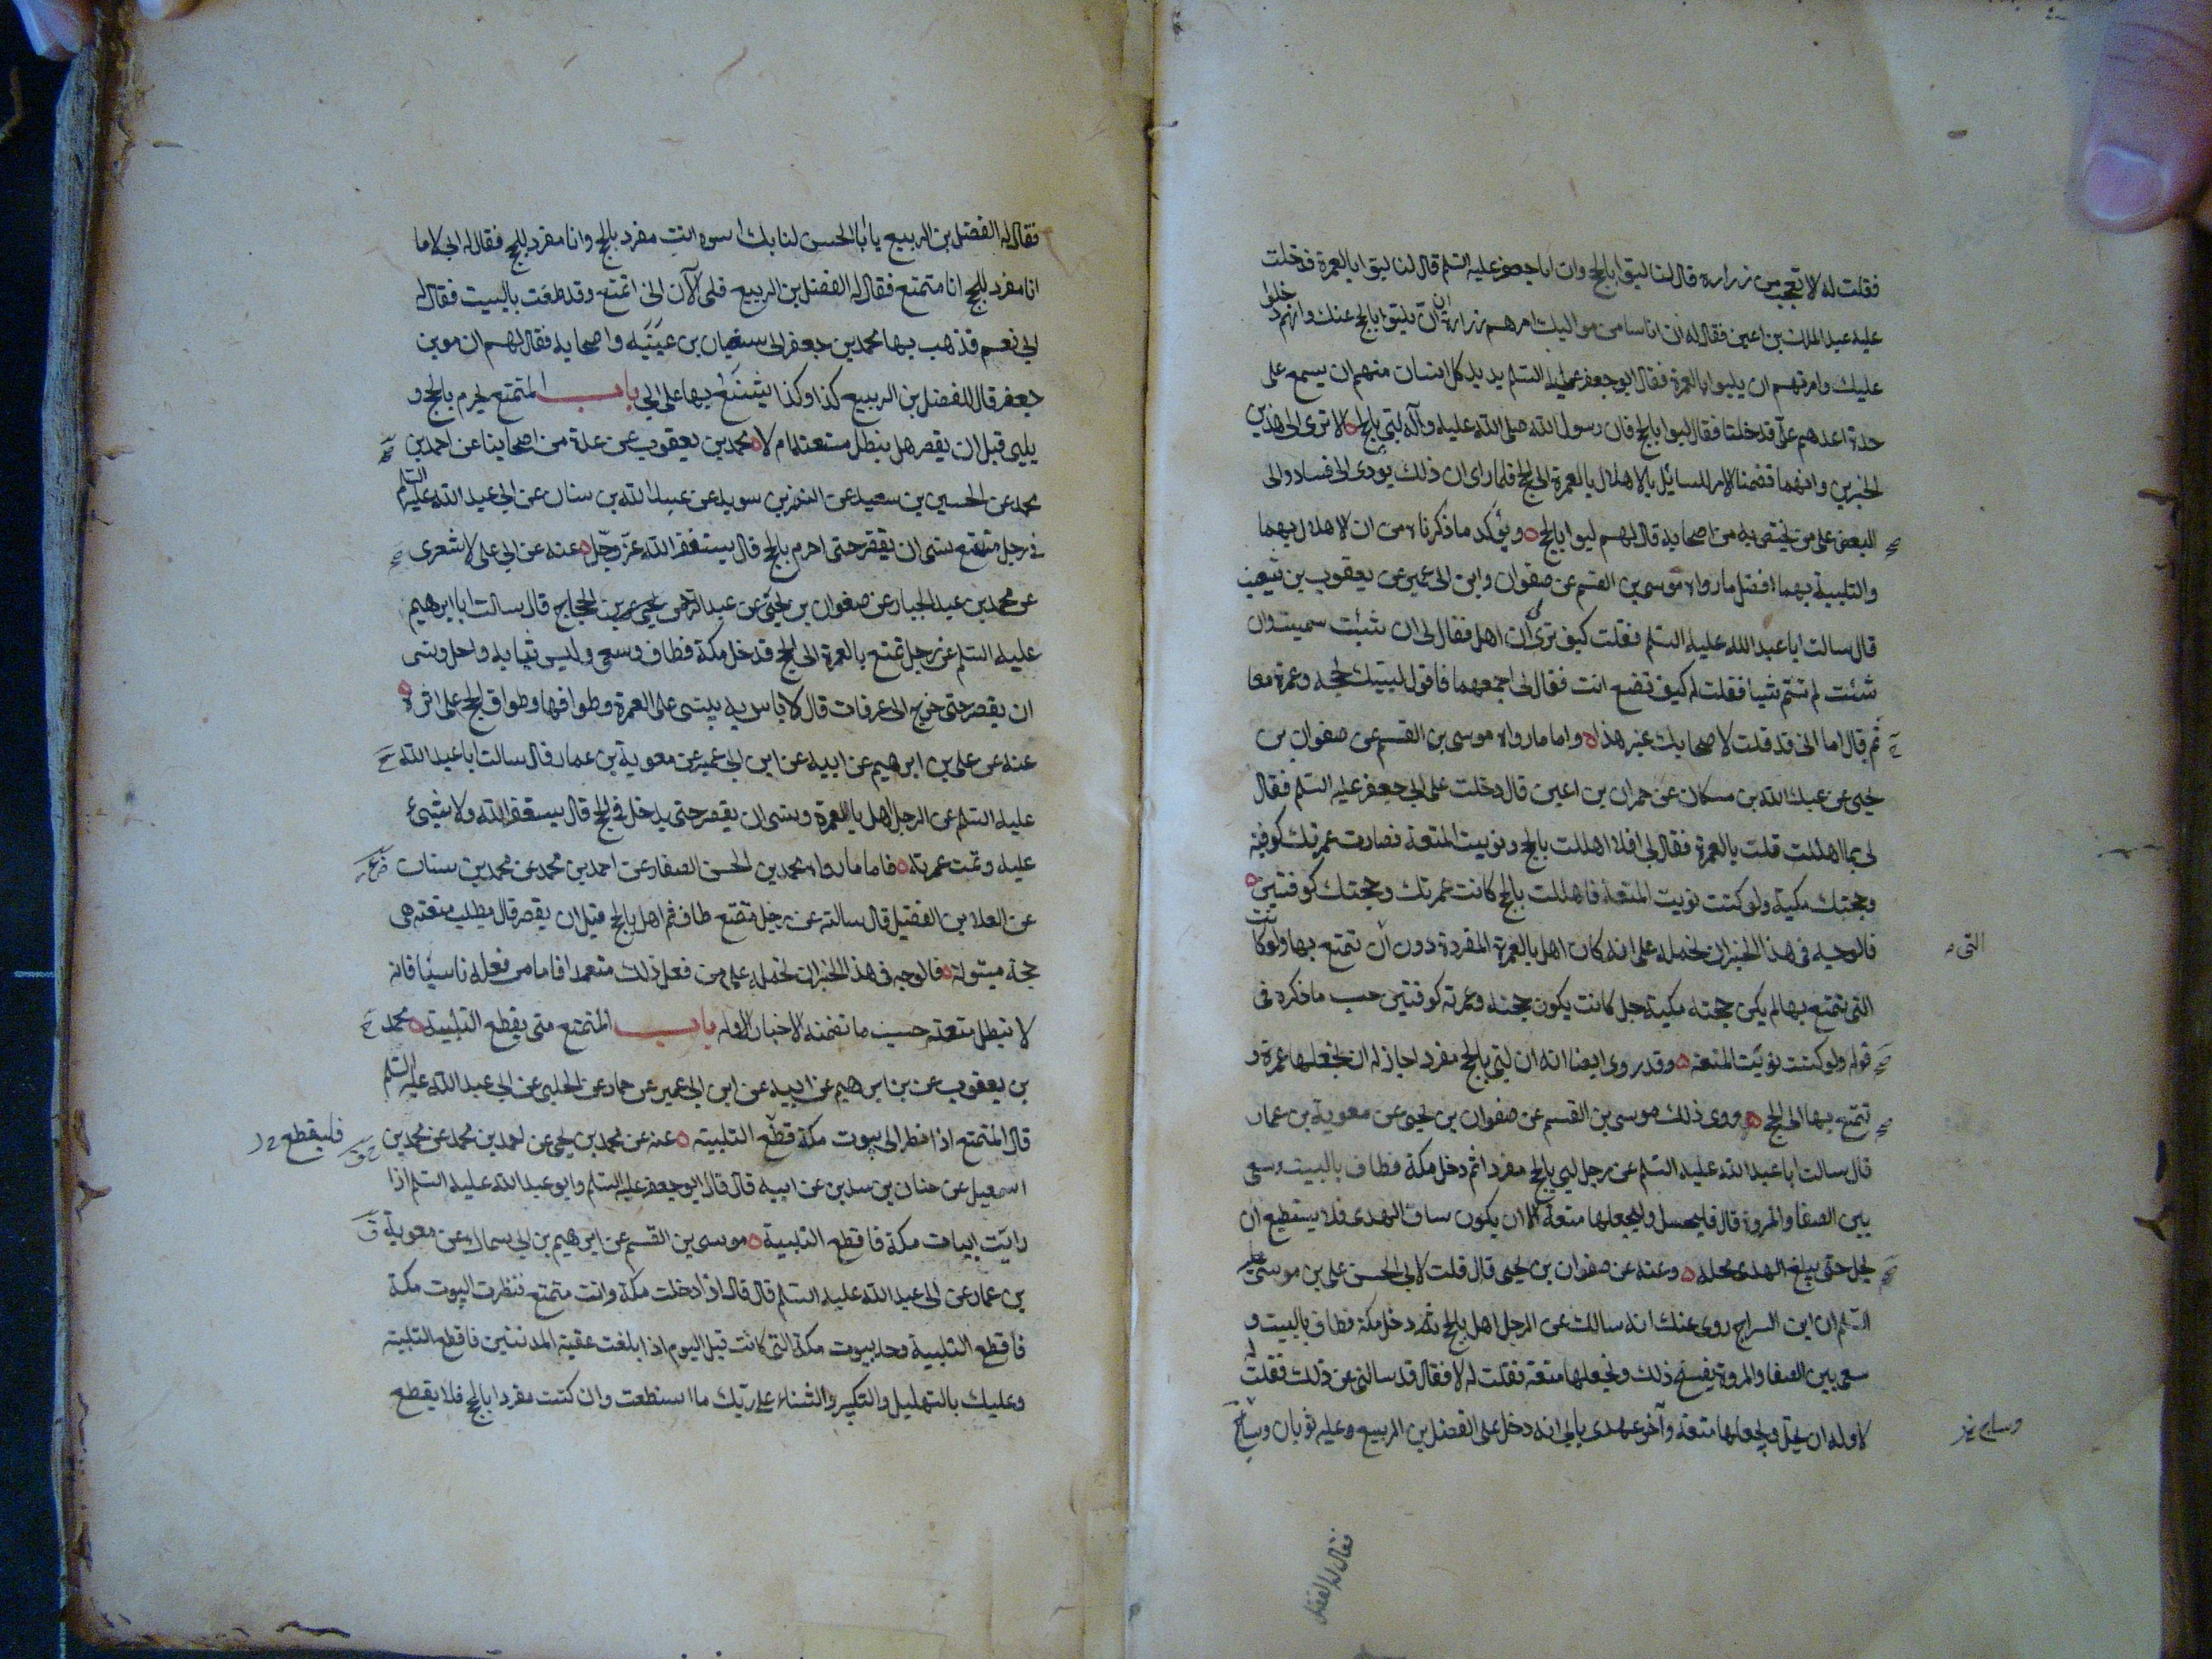 فقلت له لا تعجب من زرارة قال لنا لبوا بالحج وان ابا جعفر عليه السلم قال لنا لبوا بالعمرة فدخلت
عليه عبد الملك بن اعين فقال له ان اناسا من مواليك امرهم زرارة ان يلبوا بالحج عنك وانهم دخلوا
عليك وامرتهم ان يلبوا بالعمرة فقال ابو جعفر عليه السلم يريد كل انسان منهم ان يسمع على
حدة اعدهم علي فدخلنا فقال لبوا بالحج فان رسول الله صلى الله عليه وآله لبى بالحج الا ترى الى هذين
الخبرين وانهما تضمنا الامر للسائل بالاهلال بالعمرة الى الحج فلما راى ان ذلك يودى الى فساد والى
البعض على من يختص به من اصحابه قال لهم لبوا بالحج ويؤكد ما ذكرناه من ان الاهلال بهما
والتلبية بهما افضل ما رواه موسى بن القسم عن صفوان وابن ابي عمير عن يعقوب بن شعيب
قال سالت ابا عبد الله عليه السلم فقلت كيف ترى لي ان اهل فقال لى ان شئت سميت وان
شئت لم تسم شيا فقلت له كيف تصنع انت فقال لى اجمعهما فاقول لبيك بحجة وعمرة معا
ثم قال اما انى قد قلت لاصحابك غير هذا واما ما رواه موسى بن القسم عن صفوان بن
يحيى عن عبد الله بن مسكان عن حمران بن اعين قال دخلت على ابي جعفر عليه السلم فقال
لى بما اهللت قلت بالعمرة فقال لي افلا اهللت بالحج ونويت المتعة فصارت عمرتك كوفية
وحجتك مكية ولو كنت نويت المتعة فاهللت بالحج كانت عمرتك وحجتك كوفيتين
فالوجه فى هذا الخبر ان نحمله على انه كان اهل بالعمرة المفردة دون ان تمتع بها ولو كانت
التى ه
التى يتمتع بها لم يكن حجته مكية بل كانت يكون حجته وعمرته كوفيتين حسب ما ذكره فى
قوله ولو كنت نويت المتعة وقد روى ايضا انه ان لبى بالحج مفردا جاز له ان يجعلها عمرة و
تمتع بها الى الحج روى ذلك موسى بن القسم عن صفوان بن يحيى عن معوية بن عمار
قال سالت ابا عبد الله عليه السلم عن رجل لبى بالحج مفردا ثم دخل مكة فطاف بالبيت وسعى
بين الصفا والمروة قال فليحل وليجعلها متعة الا ان يكون ساق الهدى فلا يستطيع ان
يحل حتى يبلغ الهدى محله وعنه عن صفوان بن يحيى قال قلت لابى الحسن على بن موسى عليه
السلم ان ابن السراج روى عنك انه سالك عن الرجل اهل بالحج ثم دخل مكة فطاف بالبيت و
سعى بين الصفا والمروة يفسخ ذلك ويجعلها متعة فقلت له لا فقال قد سالنى عن ذلك فقلت له
لا وله ان يحل ويجعلها متعة وآخر عهدى بابي انه دخل على الفضل بن الربيع وعليه ثوبان وساج
فقال له الفضل
فقال له الفضل بن الربيع يا ابا الحسن لنا بك اسوة انت مفرد بالحج وانا مفرد بالحج فقال له ابي لا ما
انا مفرد بالحج انا متمتع فقال له الفضل بن الربيع فلى الآن ان اتمتع وقد طفت بالبيت فقال له
ابي نعم فذهب بها محمد بن جعفر الى سفيان بن عيينه واصحابه فقال لهم ان موسى بن
جعفر قال للفضل بن الربيع كذا وكذا يشنع بها على ابي باب المتمتع يحرم بالحج و
يلبى قبل ان يقصر هل يبطل متعته ام لا محمد بن يعقوب عن عدة من اصحابنا عن احمد بن
محمد عن الحسين بن سعيد عن النضر بن سويد عن عبد الله بن سنان عن ابي عبد الله عليه السلم
فى رجل متمتع نسى ان يقصر حتى احرم بالحج قال يستغفر الله عز وجل عنه عن ابي على الاشعرى
عن محمد بن عبد الجبار عن صفوان بن يحيى عن عبد الرحمن بن الحجاج قال سالت ابا ابرهيم
عليه السلم عن رجل تمتع بالعمرة الى الحج فدخل مكة فطاف وسعى ولبس ثيابه واحل ونسى
ان يقصر حتى خرج الى عرفات قال لا باس به يبنى على العمرة وطوافها وطواف الحج على اثره
عنه عن على بن ابرهيم عن ابيه عن ابن ابي عمير عن معوية بن عمار قال سالت ابا عبد الله
عليه السلم عن الرجل اهل بالعمرة ونسى ان يقصر حتى يدخل فى الحج قال يستغفر الله ولا شيئ
عليه وتمت عمرته فاما ما رواه محمد بن الحسن الصفار عن احمد بن محمد عن محمد بن سنان
عن العلا بن الفضيل قال سالته عن رجل متمتع طاف ثم اهل بالحج قبل ان يقصر قال بطلت متعته هى
حجة مبتولة فالوجه فى هذا الخبر ان نحمله على من فعل ذلك متعمدا فاما من فعله ناسيا فانه
لا تبطل متعته حسب ما تضمنه الاخبار الاوله باب المتمتع متى يقطع التلبية محمد
بن يعقوب عن بن ابرهيم عن ابيه عن ابن ابي عمير عن حماد عن الحلبي عن ابي عبد الله عليه السلم
قال المتمتع اذا نظر الى بيوت مكة قطع التلبية عنه عن محمد بن يحيى عن احمد بن محمد عن محمد بن
فليقطع
اسمعيل عن حنان بن سدير عن ابيه قال قال ابو جعفر عليه السلم وابو عبد الله عليه السلم اذا
رايت ابيات مكة فاقطع التلبية موسى بن القسم عن ابرهيم بن ابي سمال عن معوية
بن عمار عن ابى عبد الله عليه السلم قال قال اذا دخلت مكة وانت متمتع فنظرت الى بيوت مكة
فاقطع التلبية وحد بيوت مكة التى كانت قبل اليوم اذا بلغت عقبة المدنيين فاقطع التلبية
وعليك بالتهليل والتكبير والثناء على ربك ما استطعت وان كنت مفردا بالحج فلا يقطع